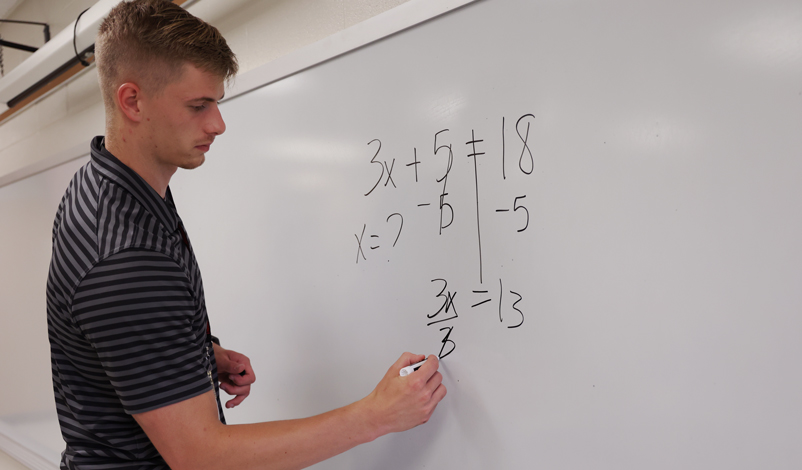 3x + 5 = 18
- 5 - 5
x = ?
3x = 13
3